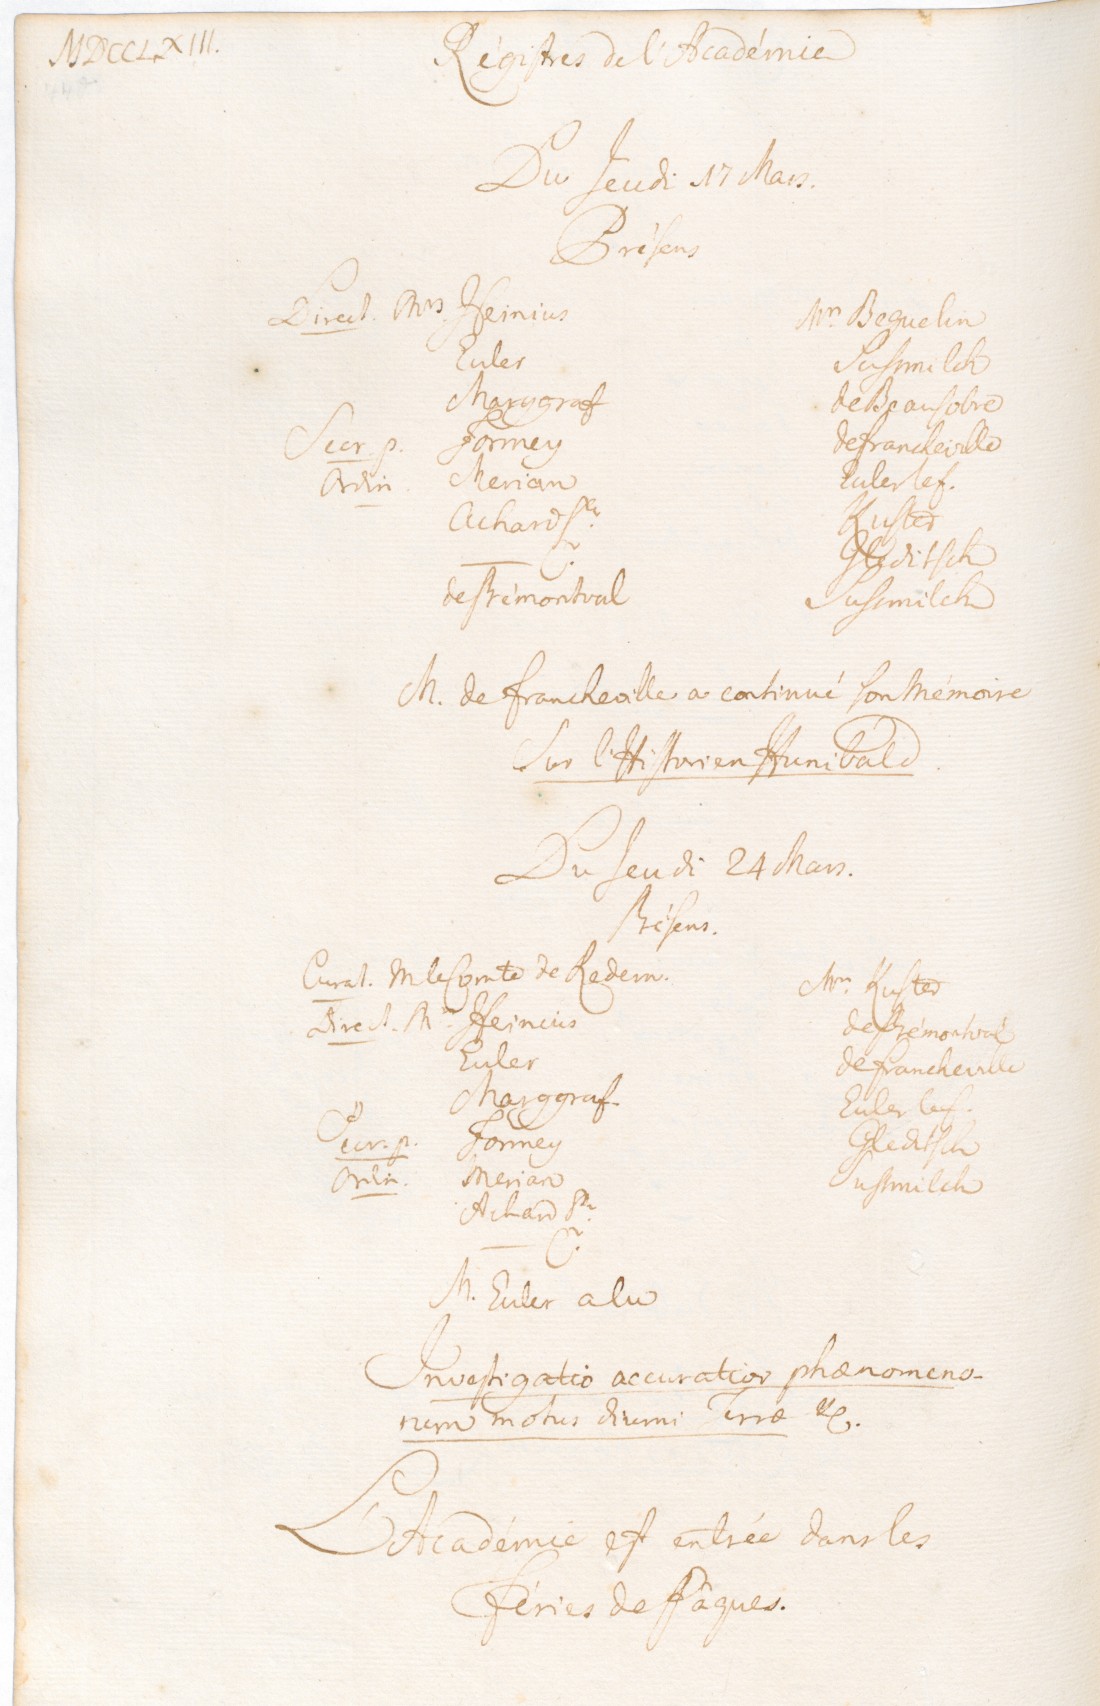 MDCCLXIII.
Régistres de l'Académie
Du Jeudi 17 Mars.
Présens
Direct. Mrs Heinius
Euler
Marggraf
Secr. p. Formey
Ordin Merian
Achard Sr.
de Prémontval
Mrs Beguelin
Sussmilch
de Beausobre
de Francheville
Euler le f.
Kuster
Gleditsch
Sussmilch
M. de Francheville a continué son Mémoire
Sur l'Historien Hunibald.
Du Jeudi 24 Mars.
Présens.
Curat. M le Comte de Redern.
Direct. Mrs Heinius
Euler
Marggraf.
Secr. p. Formey
Ordin. Merian
Achard Sr.
Mrs Kuster
de Prémontval
de Francheville
Euler le f.
Gleditsch
Sussmilch
M. Euler a lu
Investigatio accuratior phænomeno-
rum motus diurni Terræ &c.
L'Académie est entrée dans les
Féries de Pâques.